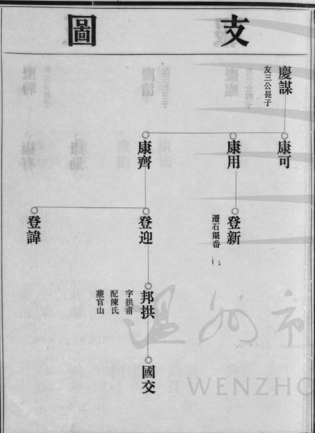 支圖
慶謀
友三公長子
康可
康用
康齊
登新
遷石㘵岙
登迎
登諱
邦拱
字拱甫
配陳氏
葬官山
國交
温州市
WENZHO